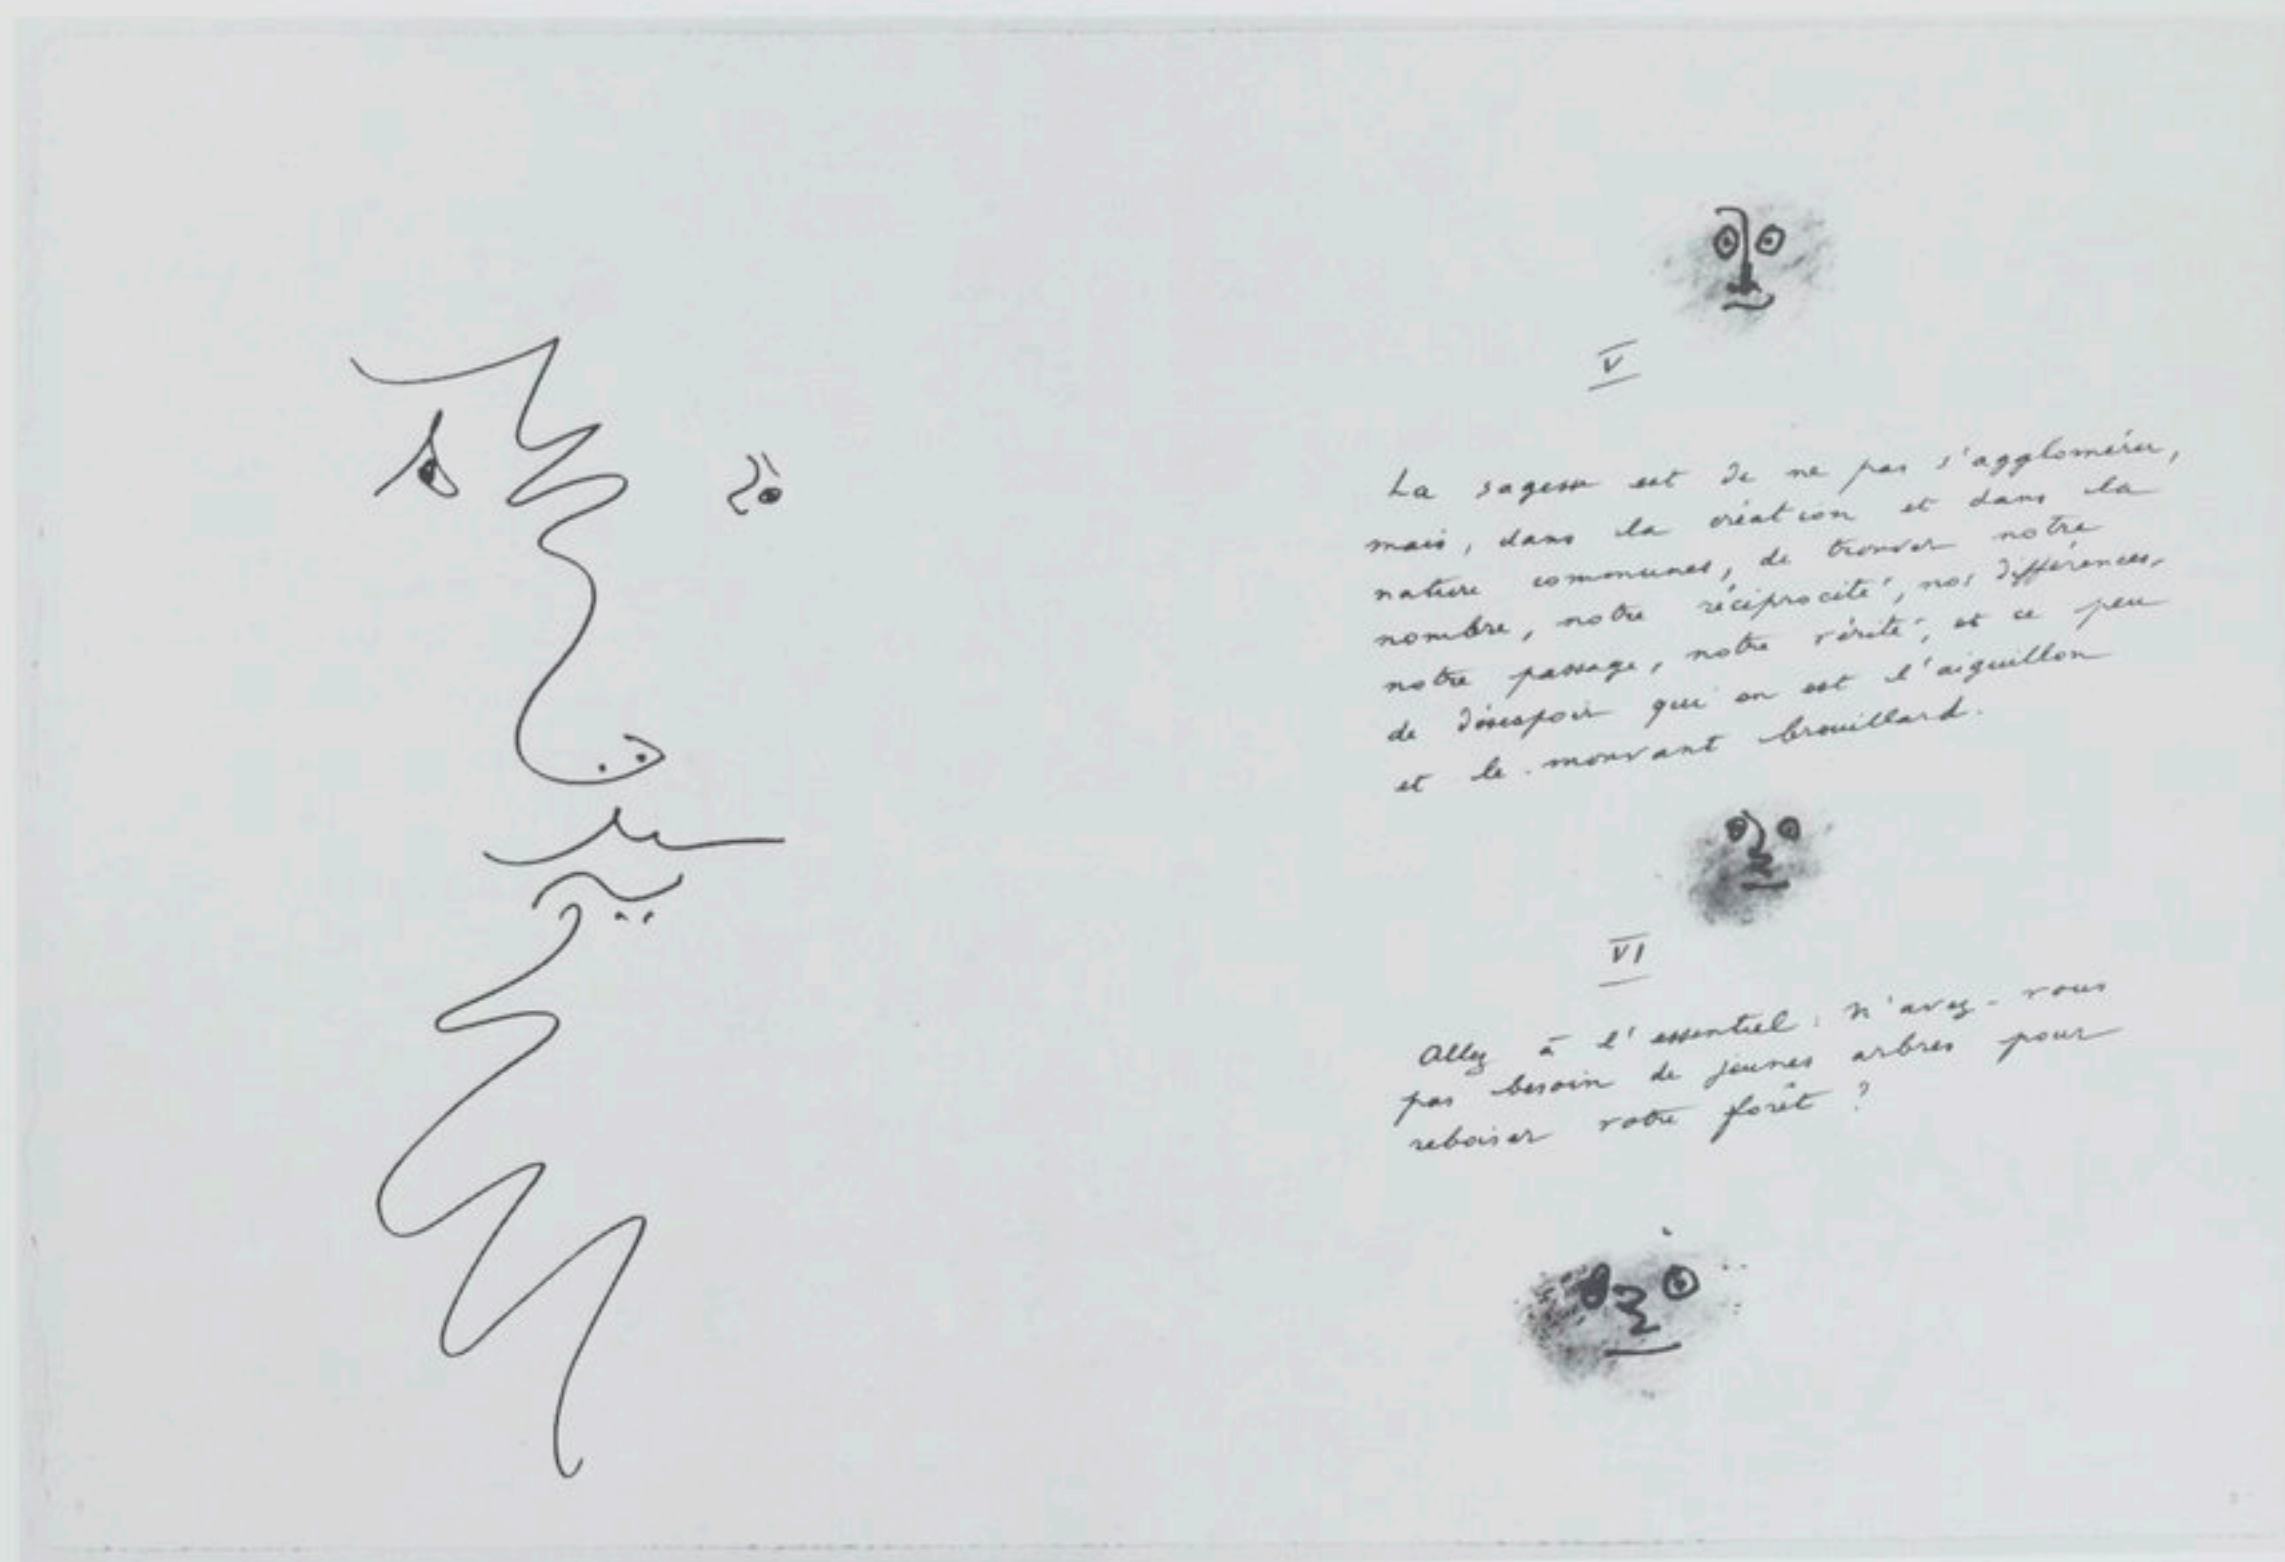 V
La sagesse est de ne pas s'agglomérer,
mais, dans la création et dans la
nature communes, de trouver notre
nombre, notre réciprocité, nos différences,
notre passage, notre vérité, et ce peu
de désespoir qui en est l'aiguillon
et le mouvant brouillard.
VI
Allez à l'essentiel : N'avez-vous
pas besoin de jeunes arbres pour
reboiser votre forêt ?